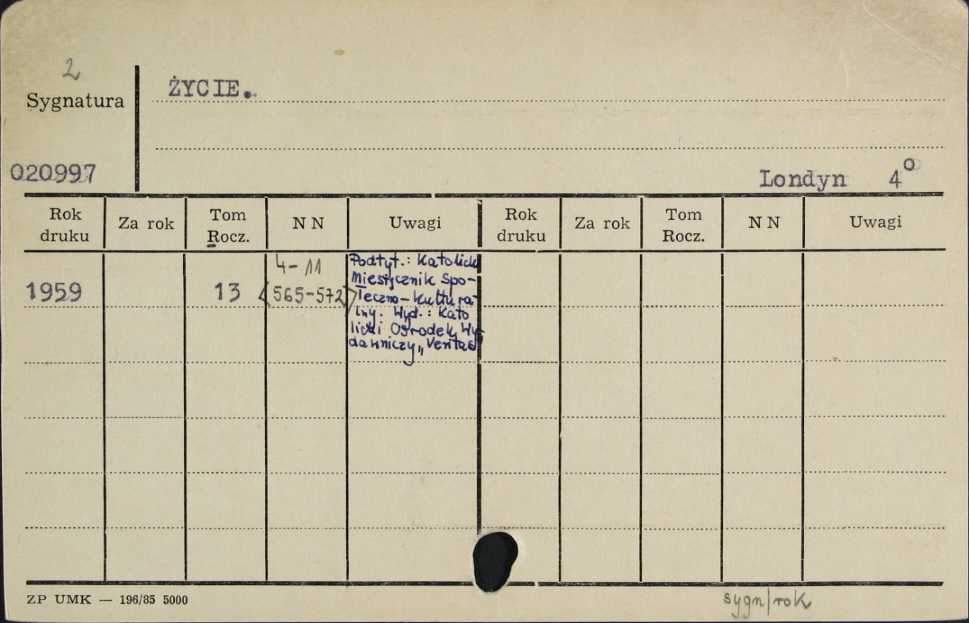 2
Sygnatura
ŻYCIE.
020997
Londyn 4°
Rok druku Za rok Tom Rocz. NN Uwagi Rok druku Za rok Tom Rocz. NN Uwagi
1959 13 4-11
(565-572)
Podtyt.: Katolicki
Miesięcznik Spo-
łeczno-kultural-
lny. Wyd.: Kato
licki Ośrodek Wy-
dawniczy „Veritas"
ZP UMK — 196/85 5000
sygn/rok